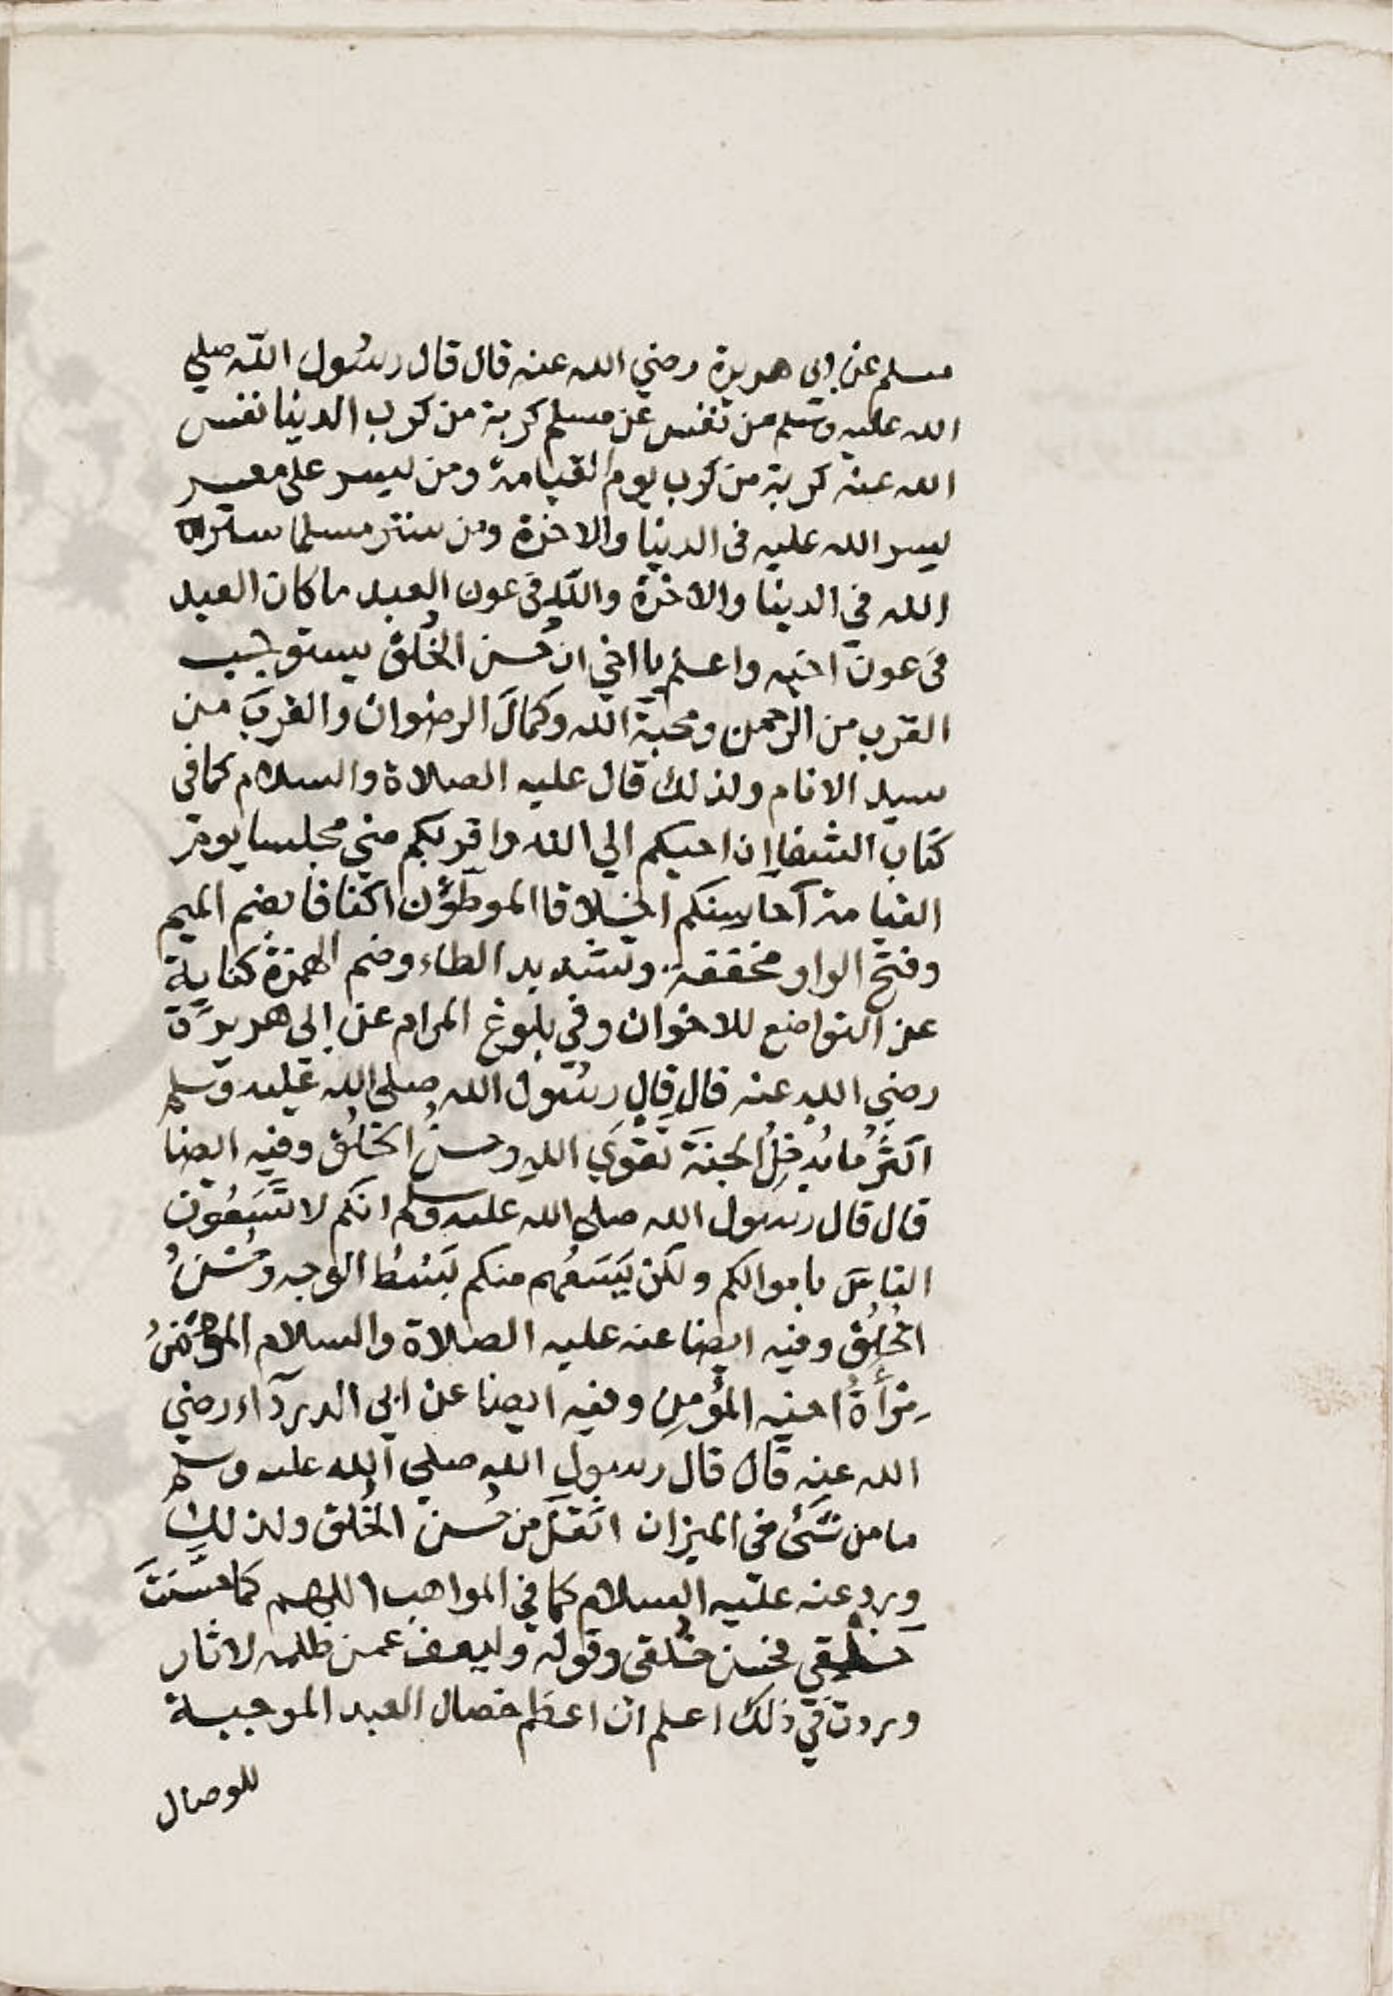 مسلم عن ابى هريرة رضي الله عنه قال قال رسُول اللّه صلي
الله عليه وسّلم من نفس عن مسلم كربة من كرب الدنيا نفس
الله عنه كربة من كرب يوم القيامة ومن ليسر على معسر
ليسر الله عليه فى الدنيا والاخرة ومن ستر مسلما ستره
الله في الدنيا والاخرة واللّه فى عون العبد ما كان العبد
فى عون اخيه واعلم يا اخي ان حُسن الخُلُق يستوجب
القرب من الرحمن ومحبةَ الله وكمالَ الرضوان والقربَ من
سيد الانام ولذلك قال عليه الصلاة والسلام كما فى
كتاب الشفا ان احبكم الي الله واقربكم مني مجلسا يوم
القيامة آحاسنكم اخلاقا الموطّؤن اكنافا بضم الميم
وفتح الواو مخففة وتشديد الطاء وضم الهمزة كناية
عن التواضع للاخوان وفي بلوغ المرام عن ابى هريرَة
رضي الله عنه قال قال رسُول الله صلي الله عَليه وسلم
اكثرُ ما يُدخِلُ الجنةَ تَقوَي اللهِ وحسنُ الخلُق وفيه ايضا
قال قال رسول الله صلي الله عليه وسلم انكم لا تَسَعُون
الناسَ باموالكم ولكن يَسَعُهم منكم بَسْطُ الوجه وحُسْنُ
الخُلُق وفيه ايضا عنه عليه الصلاة والسلام المؤمنُ
مِرْأةُ اخيه المؤمِنِ وفيه ايضا عن ابي الدردآء رضي
الله عنه قال قال رسول الله صلي الله عليه وسلم
ما من شَىْء في الميزان اثقلَ من حُسنِ الخُلق ولذلك
ورد عنه عليه السلام كما في المواهب اللهم كما حسّنتَ
خَلْقي فحسن خُلقى وقوله وليعف عمن ظلمه لاثار
وردت في ذلك اعلم ان اعظم خصال العبد الموجبة
للوصال